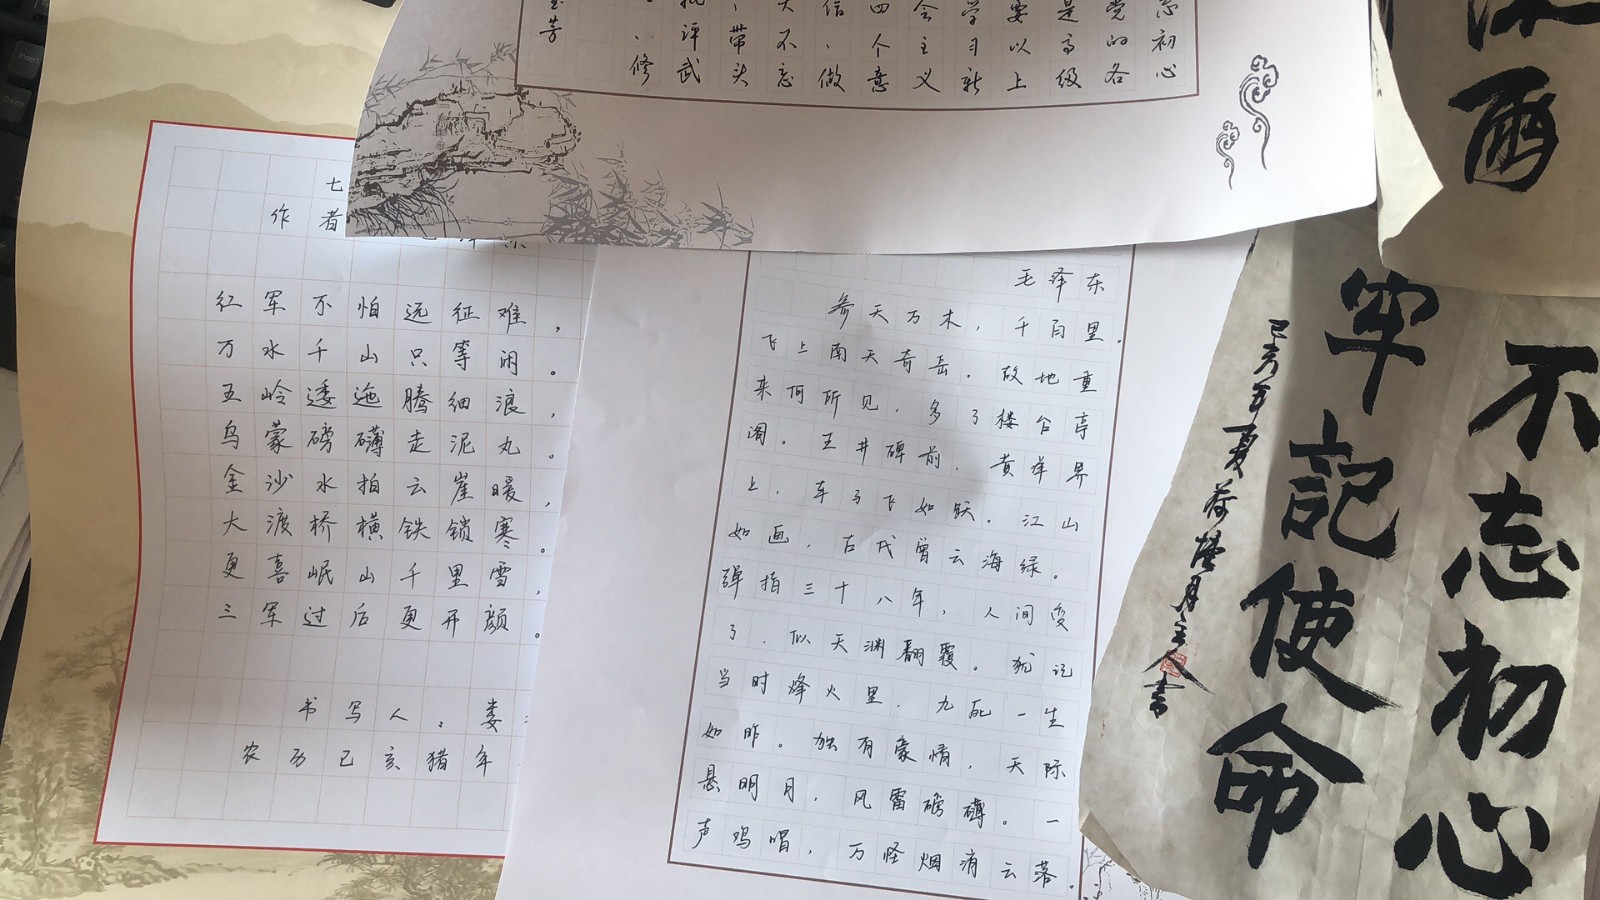 七
作者
红军不怕远征难，
万水千山只等闲。
五岭逶迤腾细浪，
乌蒙磅礴走泥丸。
金沙水拍云崖暖，
大渡桥横铁锁寒。
更喜岷山千里雪，
三军过后更开颜。
书写人：娄
农历己亥猪年
忘初心
党的各
是高级
要以上
学习新
会主义
四个意
信、做
大不忘
、带头
批评武
、修
芳
毛泽东
参天万木，千百里。
飞上南天奇岳。故地重
来何所见，多了楼台亭
阁。五井碑前，黄洋界
上，车子飞如跃。江山
如画，古代曾云海绿。
弹指三十八年，人间变
了，似天渊翻覆。犹记
当时烽火里，九死一生
如昨。独有豪情，天际
悬明月，风雷磅礴。一
声鸡唱，万怪烟消云落。
不忘初心
牢记使命
己亥年夏荷塘月主人书